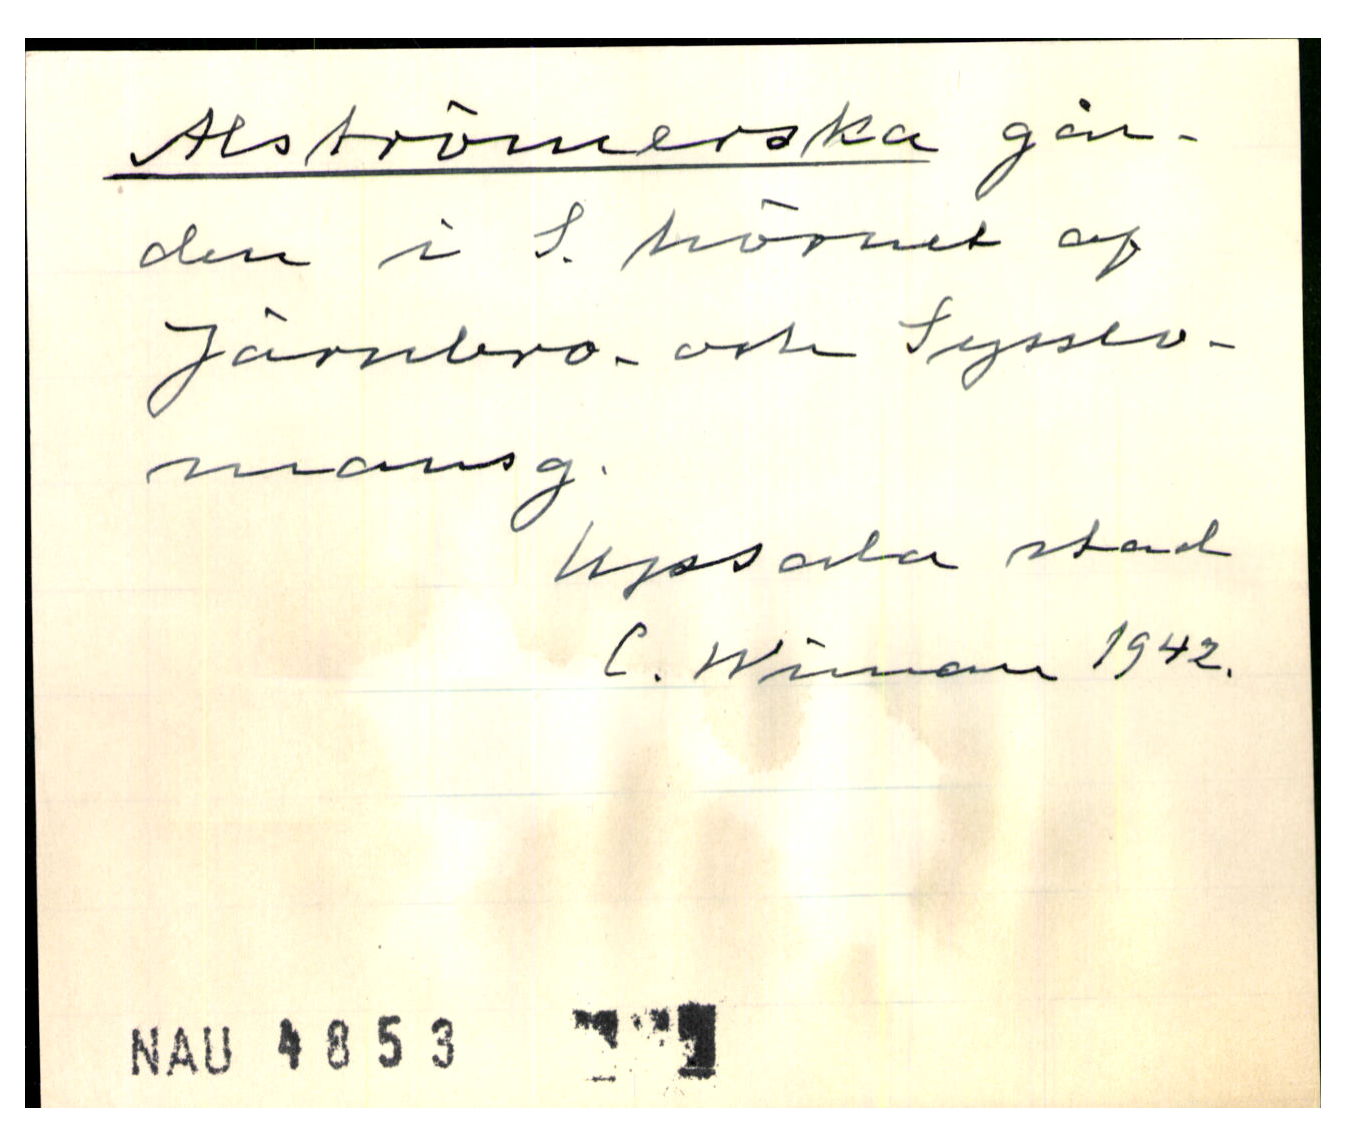 Alströmerska går-
den i S. hörnet af
Järnbro- och Sysslo-
mansg.
Uppsala stad
C. Wiman 1942.
NAU 4853